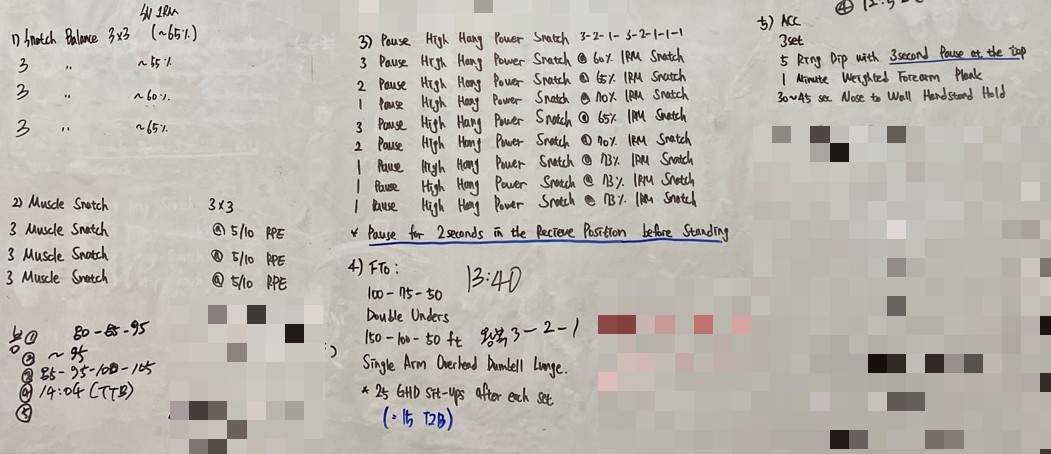 SN 1RM
1) Snatch Balance 3x3 (~65%)
3 " ~55%
3 " ~60%
3 " ~65%
2) Muscle Snatch 3x3
3 Muscle Snatch @ 5/10 RPE
3 Muscle Snatch @ 5/10 RPE
3 Muscle Snatch @ 5/10 RPE
① 80-85-95
② ~95
③ 85-95-100-105
④ 14:04 (TTB)
⑤
3) Pause High Hang Power Snatch 3-2-1-3-2-1-1-1
3 Pause High Hang Power Snatch @ 60% 1RM Snatch
2 Pause High Hang Power Snatch @ 65% 1RM Snatch
1 Pause High Hang Power Snatch @ 70% 1RM Snatch
3 Pause High Hang Power Snatch @ 65% 1RM Snatch
2 Pause High Hang Power Snatch @ 70% 1RM Snatch
1 Pause High Hang Power Snatch @ 73% 1RM Snatch
1 Pause High Hang Power Snatch @ 73% 1RM Snatch
1 Pause High Hang Power Snatch @ 73% 1RM Snatch
* Pause for 2seconds in the Recieve Position before Standing
4) FTO: 13:40
100-75-50
Double Unders
150-100-50 ft 왕복 3-2-1
Single Arm Overhead Dumbell Lunge.
* 25 GHD Sit-ups after each set
(=15 T2B)
5) ACC
3set
5 Ring Dip with 3second Pause at the top
1 Minute Weighted Forearm Plank
30~45 sec Nose to Wall Handstand Hold